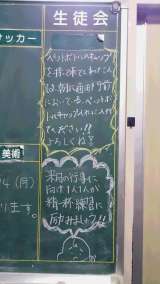 生徒会
サッカー
ペットボトルのキャップ
を持って来てくれた人
は、
において
ペットボ
トルキャップ入れに入れて
ください!!
よろしくね!
美術
来月の行事に
向け1人1人が
精一杯練習に
励みましょう!!
(月)
ります。